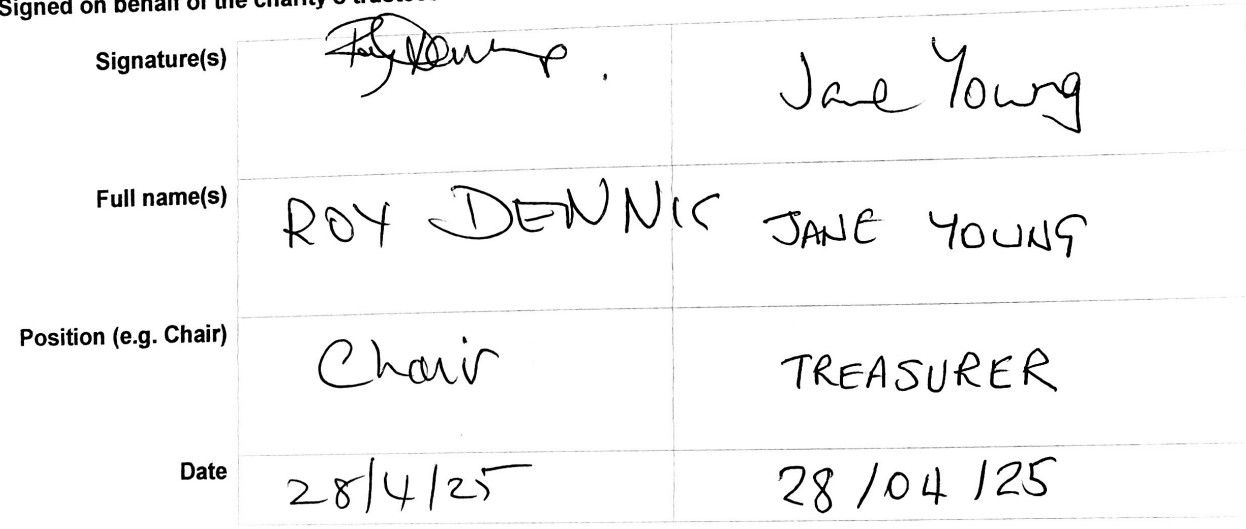 Signed on behalf of the charity's trustees
Signature(s) Jane Young
Full name(s) ROY DENNIS JANE YOUNG
Position (e.g. Chair) Chair TREASURER
Date 28/4/25 28/04/25